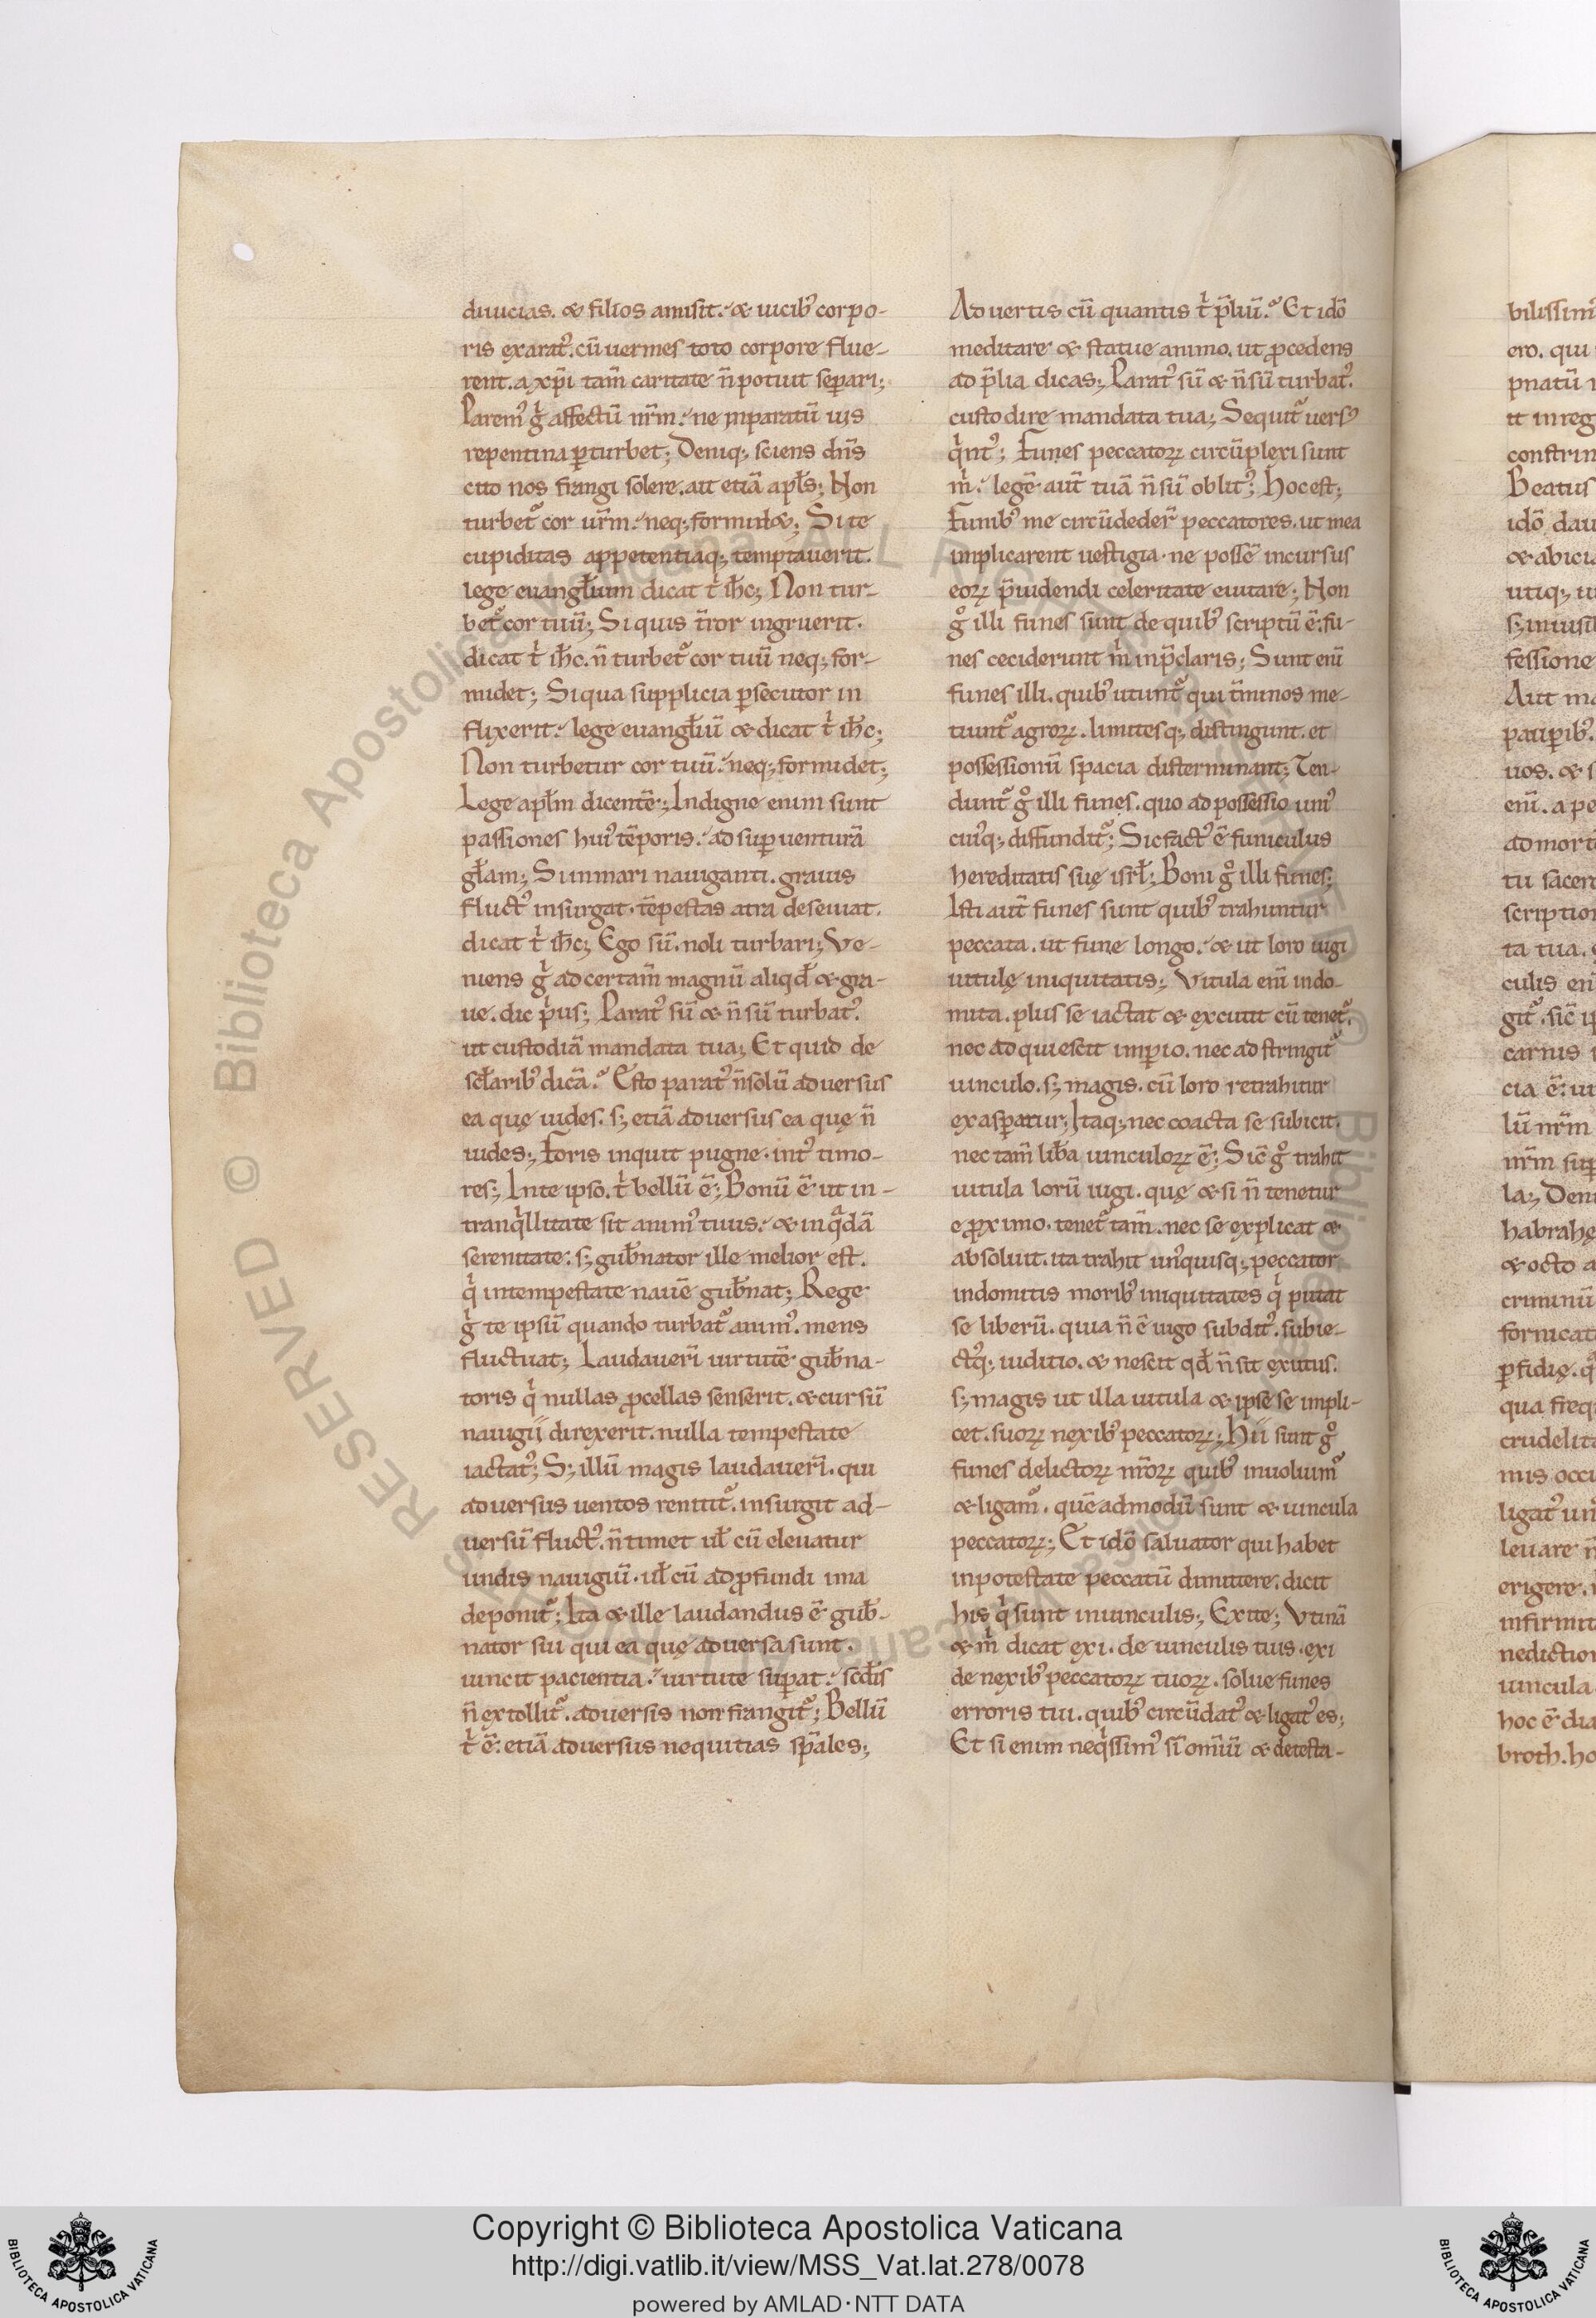 diuicias. & filios amisit. & uicib᾽ corpo-
ris exarat᾽. cū uermes toto corpore flue-
rent. a xp̄i tam̄ caritate n̄ potuit separi;
Parem᾽ gͥ affectū nr̄m. ne inparatū uis
repentina pturbet; Deniq; sciens dn̄s
cito nos frangi solere. ait etiā apl̄is; Non
turbet᾽ cor ur̄m. neq; formidet; Si te
cupiditas appetentiaq; temptauerit.
lege euangl̄ium dicat tͥ ih̄c; Non tur-
bet᾽ cor tuū; Si quis tr̄ror ingruerit.
dicat tͥ ih̄c. n̄ turbet᾽ cor tuū neq; for-
midet; Si qua supplicia psecutor in
flixerit. lege euangl̄iū & dicat tͥ ih̄c;
Non turbetur cor tuū. neq; formidet;
Lege apl̄m dicentē; Indigne enim sunt
passiones hui᾽ tēporis. ad sup uenturā
gl̄am; Si in mari nauiganti. grauis
fluct᾽ insurgat. tēpestas atra deseuiat.
dicat tͥ ih̄c; Ego sū. noli turbari; Ve-
niens gͥ ad certam̄ magnū aliqd̄ & gra-
ue. dic pͥus; Parat᾽ sū & n̄ sū turbat᾽.
ut custodiā mandata tua; Et quid de
scl̄arib᾽ dicā. Esto parat᾽ n̄ solū aduersus
ea quę uides. s; etiā aduersus ea quę n̄
uides; Foris inquit pugne. int᾽ timo-
res; In te ipso. tͥ bellū ē; Bonū ē ut in-
tranqͥllitate sit anim᾽ tuus. & in qͣdā
serenitate. s; gub̄nator ille melior est.
qͥ intempestate nauē gub̄nat; Rege
gͥ te ipsū quando turbat᾽ anim᾽. mens
fluctuat; Laudauerī uirtutē gub̄na-
toris qͥ nullas pcellas senserit. & cursū
nauigii direxerit. nulla tempestate
iactat᾽; S; illū magis laudauerī. qui
aduersus uentos renitit᾽. insurgit ad-
uersū fluct᾽. n̄ timet ul̄ cū eleuatur
undis nauigiū. ul̄ cū ad pfundi ima
deponit᾽; Ita & ille laudandus ē gub̄-
nator sui qui ea quę aduersa sunt.
uincit pacientia. uirtute supat. scd̄is
n̄ extollit᾽. aduersis non frangit᾽; Bellū
tͥ ē. etiā aduersus nequitias sp̄ales;
Aduertis cū quantis tͥ p̄liū. Et idō
meditare & statue animo. ut pcedens
ad p̄lia dicas; Parat᾽ sū & n̄ sū turbat᾽.
custodire mandata tua; Sequit᾽ uers᾽
qͥnt᾽; Funes peccatoꝝ circūplexi sunt
mͥ. legē aut̄ tuā n̄ sū oblit᾽; Hoc est;
Funib᾽ me circūdeder̄ peccatores. ut mea
implicarent uestigia. ne possē incursus
eoꝝ p̄uidendi celeritate euitare; Non
gͦ illi funes sunt de quib᾽ scriptū ē. fu-
nes ceciderunt mͥ in p̄claris; Sunt enī
funes illi. quib᾽ utunt᾽ qui t̄minos me-
tiunt᾽ agroꝝ. limitesq; distingunt. et
possessionū spacia disterminant; Ten-
dunt᾽ gͦ illi funes. quo ad possessio uni᾽
cui᾽q; diffundit᾽; Sic fact᾽ ē funiculus
hereditatis suę isrl̄; Boni gͦ illi funes;
Isti aut̄ funes sunt quib᾽ trahuntur
peccata. ut fune longo. & ut loro iugi
uitulę iniquitatis; Vitula enī indo-
mita. plus se iactat & excutit cū tenet᾽.
nec adquiescit impio. nec adstringit᾽
uinculo. s; magis. cū loro retrahitur
exaspatur; Itaq; nec coacta se subicit.
nec tam̄ lib̄a uinculoꝝ ē; Sic̄ gͦ trahit
uitula lorū iugi. quę & si n̄ tenetur
e pximo. tenet᾽ tam̄. nec se explicat &
absoluit. ita trahit un᾽quisq; peccator
indomitis morib᾽ iniquitates qͥ putat
se liberū. quia n̄ ē iugo subdit᾽. subie-
ct᾽q; uiditio. & nescit qd̄ n̄ sit exutus.
s; magis ut illa uitula & ipse se impli-
cet. suoꝝ nexib᾽ peccatoꝝ; Hii sunt gͦ
funes delictoꝝ nr̄oꝝ quib᾽ inuoluim᾽
& ligam᾽. quēadmodū sunt & uincula
peccatoꝝ; Et idō saluator qui habet
inpotestate peccatū dimittere. dicit
his qͥ sunt inuinculis; Exite; Vtinā
& mͥ dicat exi. de uinculis tuis. exi
de nexib᾽ peccatoꝝ tuoꝝ. solue funes
erroris tui. quib᾽ circūdat᾽ & ligat᾽ es;
Et si enim neqͥssim᾽ sī omīū & detesta-
Copyright © Biblioteca Apostolica Vaticana
http://digi.vatlib.it/view/MSS_Vat.lat.278/0078
powered by AMLAD·NTT DATA